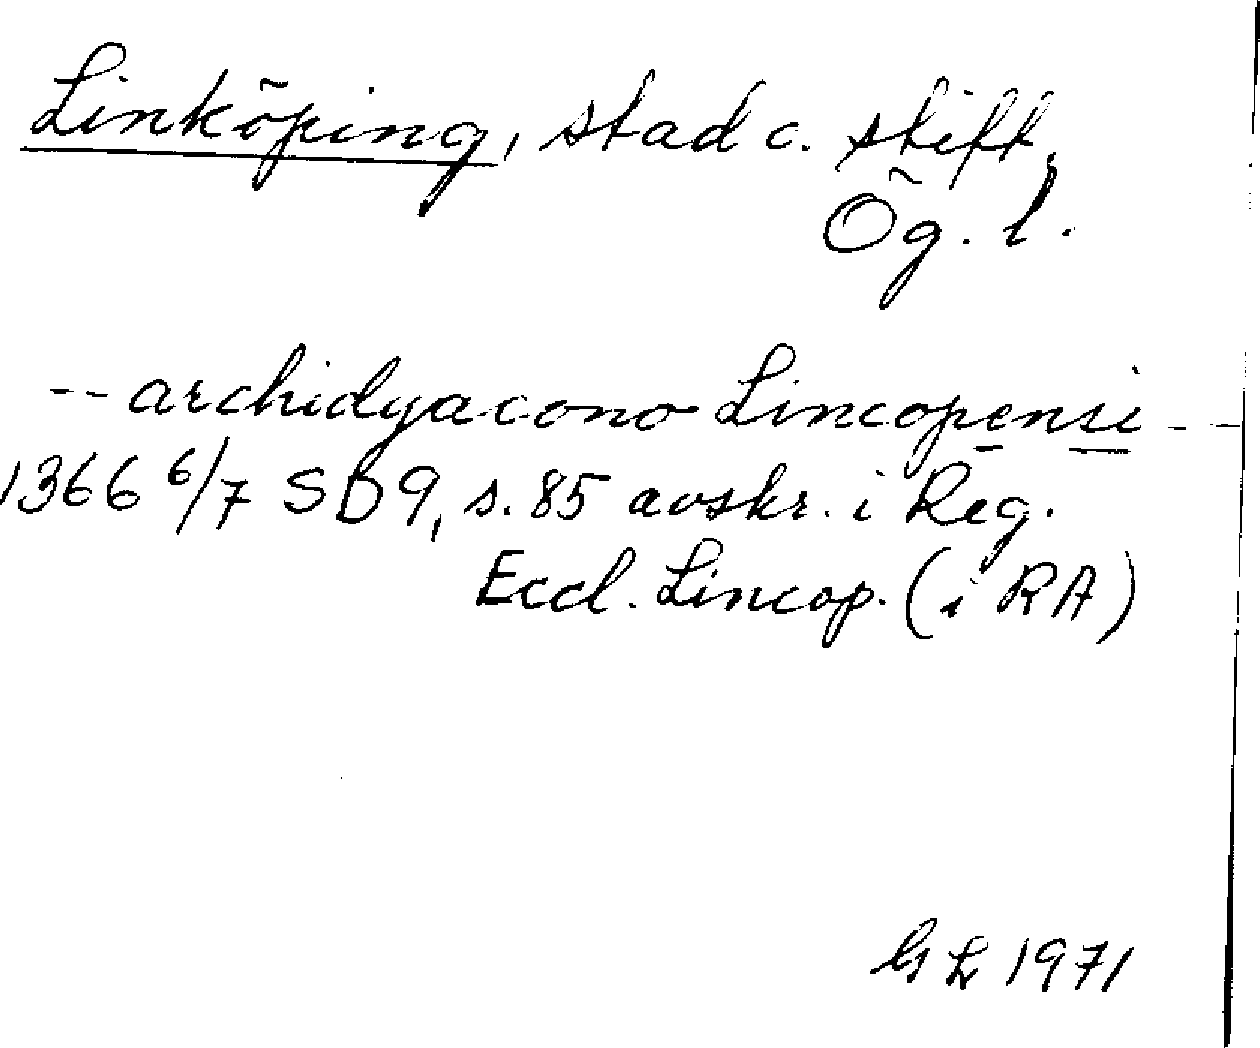 Linköping, stad o. stift,
Ög. l.
-- archidyacono Lincopensi --
1366 6/7 SD9, s. 85 avskr. i Reg.
Eccl. Lincop. (i RA)
GL 1971